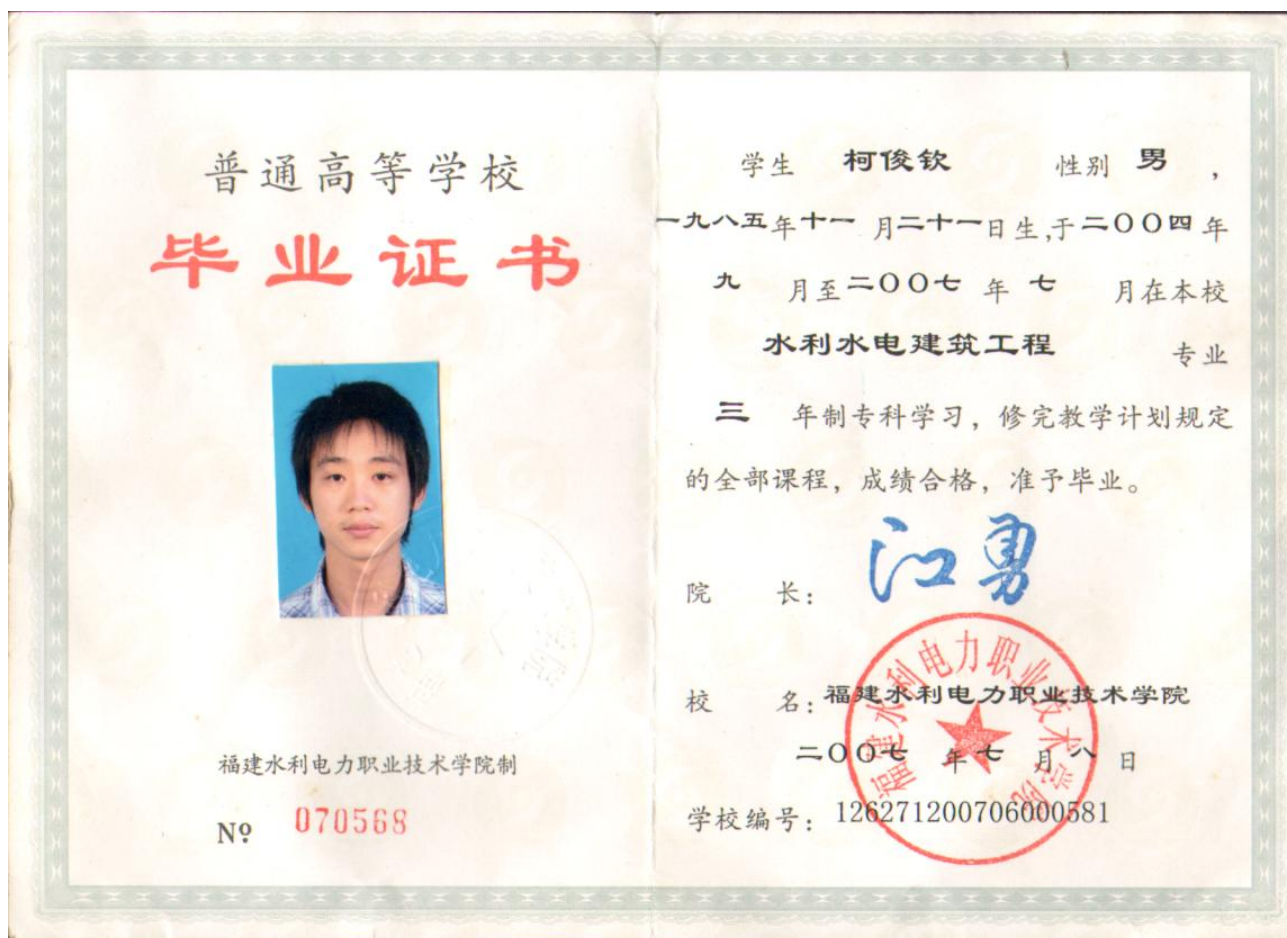 普通高等学校
毕业证书
福建水利电力职业技术学院制
Nº 070568
学生 柯俊钦 性别 男 ，
一九八五年十一月二十一日生,于二〇〇四年
九 月至二〇〇七 年 七 月在本校
水利水电建筑工程 专业
三 年制专科学习，修完教学计划规定
的全部课程，成绩合格，准予毕业。
院 长： 江勇
校 名：福建水利电力职业技术学院
二〇〇七 年 七 月 八 日
学校编号：126271200706000581
福建水利电力职业技术学院